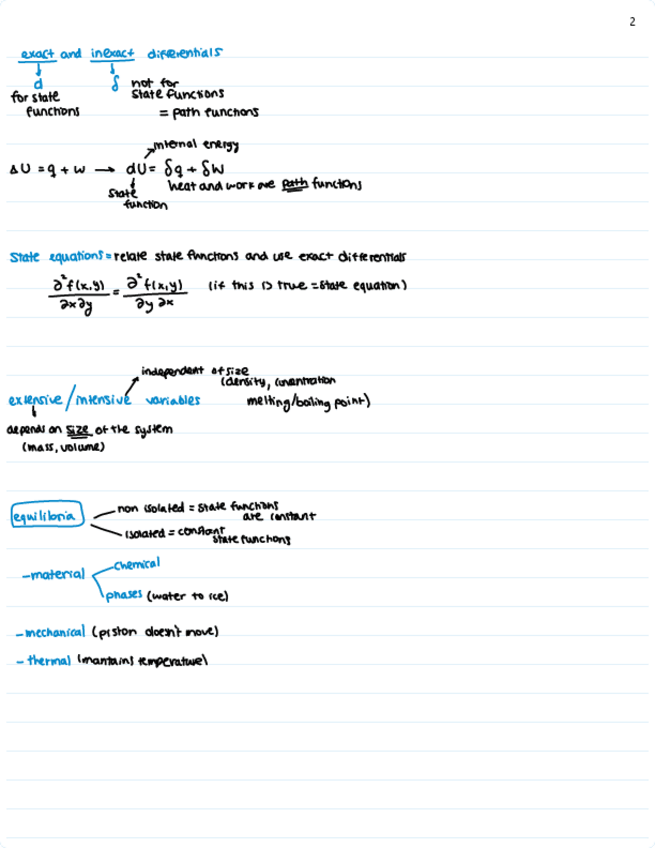 2
exact and inexact differentials
d
δ
not for
state functions
= path functions
for state
functions
internal energy
ΔU = q + w → dU = δq + δw
state
function
heat and work are path functions
State equations = relate state functions and use exact differentials
∂²f(x,y)/∂x∂y = ∂²f(x,y)/∂y∂x (if this is true = state equation)
independent of size
(density, concentration
melting/boiling point)
extensive/intensive variables
depends on size of the system
(mass, volume)
equilibria
non isolated = state functions
are constant
isolated = constant
state functions
-material
chemical
phases (water to ice)
-mechanical (piston doesn't move)
- thermal (mantains temperature)